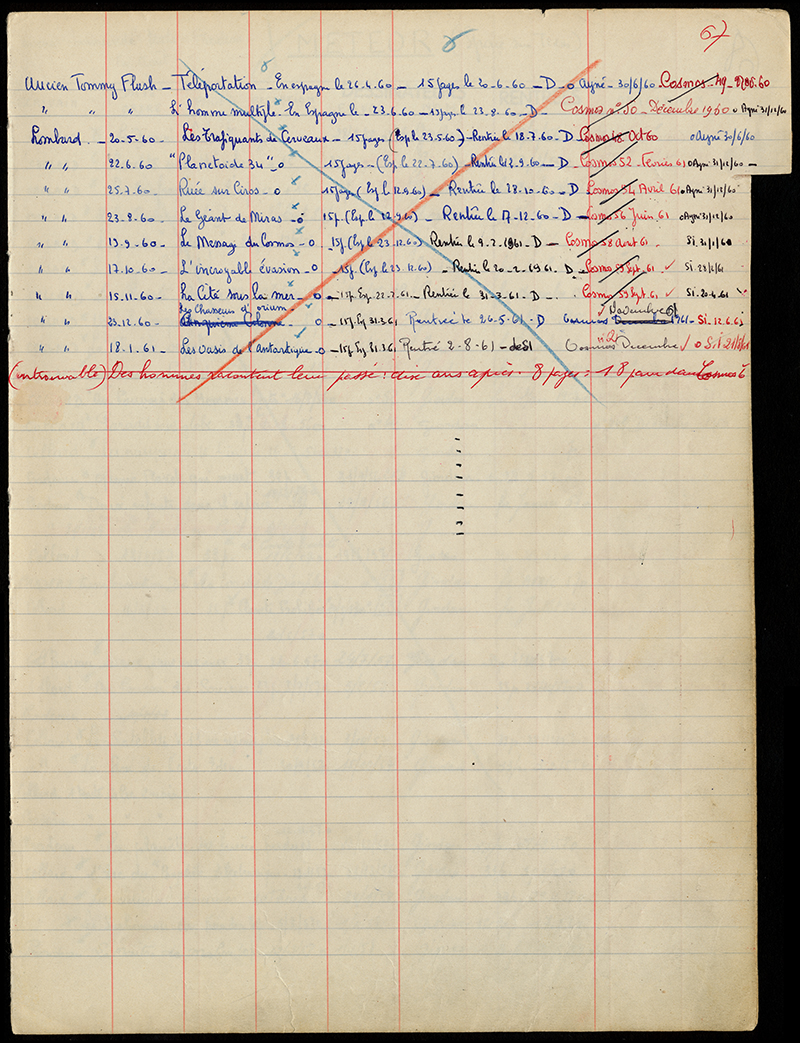 67
Ancien Tommy Flush - Téléportation - En espagne le 26.4.60 - 15 pages le 20-6-60 - D - o Ayné - 30/6/60 Cosmos 49 - Nov. 60
" " " L'homme multiple - En Espagne le 23.6.60 - 15 pages le 23.8.60 - D - Cosmos n° 50 - Décembre 1960 o Ayné 31/12/60
Lombard - 20-5-60 - Les Trafiquants de Cerveaux - 15 pages (Exp. le 23.5.60) - Rentrée le 18.7.60 - D Cosmos 48 Oct 60 o Ayné 30/6/60
" " 22.6.60 "Planetoïde 34" - o 15 pages - (Exp. le 22.7.60) Rentrée le 2.9.60 - D Cosmos 52 - Fevrier 61 o Ayné 31/12/60 -
" " 25.7.60 - Ruée sur Ciros - o 15 pages (Exp. le 12.9.60) - Rentrée le 28.10.60 - D Cosmos 54 Avril 61 o Ayné 31/12/60
" " 23.8.60 - Le Géant de Miras - o 15 p. (Exp. le 12.9.60) - Rentrée le 17-12.60 - D - Cosmos 56 Juin 61 o Ayné 31/12/60
" " 19.9.60 - Le Messag. du Cosmos - o - 15 p. (Exp. le 23.12.60) Rentrée le 9-2.1961 - D - Cosmos 58 Aout 61 Si.
" " 17.10.60 - L'incroyable évasion - o - 15 p. (Exp. le 23.12.60) - Rentrée le 20-2-1961. D - Cosmos 59 Sept. 61 ✓ Si
" " 15.11.60 - La Cité sous la mer - o - 15 p. Exp. 22.2.61. - Rentrée le 31-3-61. D - Cosmos 59 Sept. 61 ✓ Si. 20.4.61
Les Chasseurs d'orium ✓ Novembre 61
" " 23.12.60 - Cinquième Colonne - 15 p. Exp 31.3.61 Rentrée le 26-5-61 - D Cosmos Decembre 1961 - Si.
" " 18.1.61 - Les oasis de l'antartique - o - 15 p. Exp 31.3.61 Rentré 2-8-61 - Cosmos Decembre ✓ o Si
(introuvable) Des hommes racontent leur passé: dix ans après. 8 pages: 18 dans Cosmos